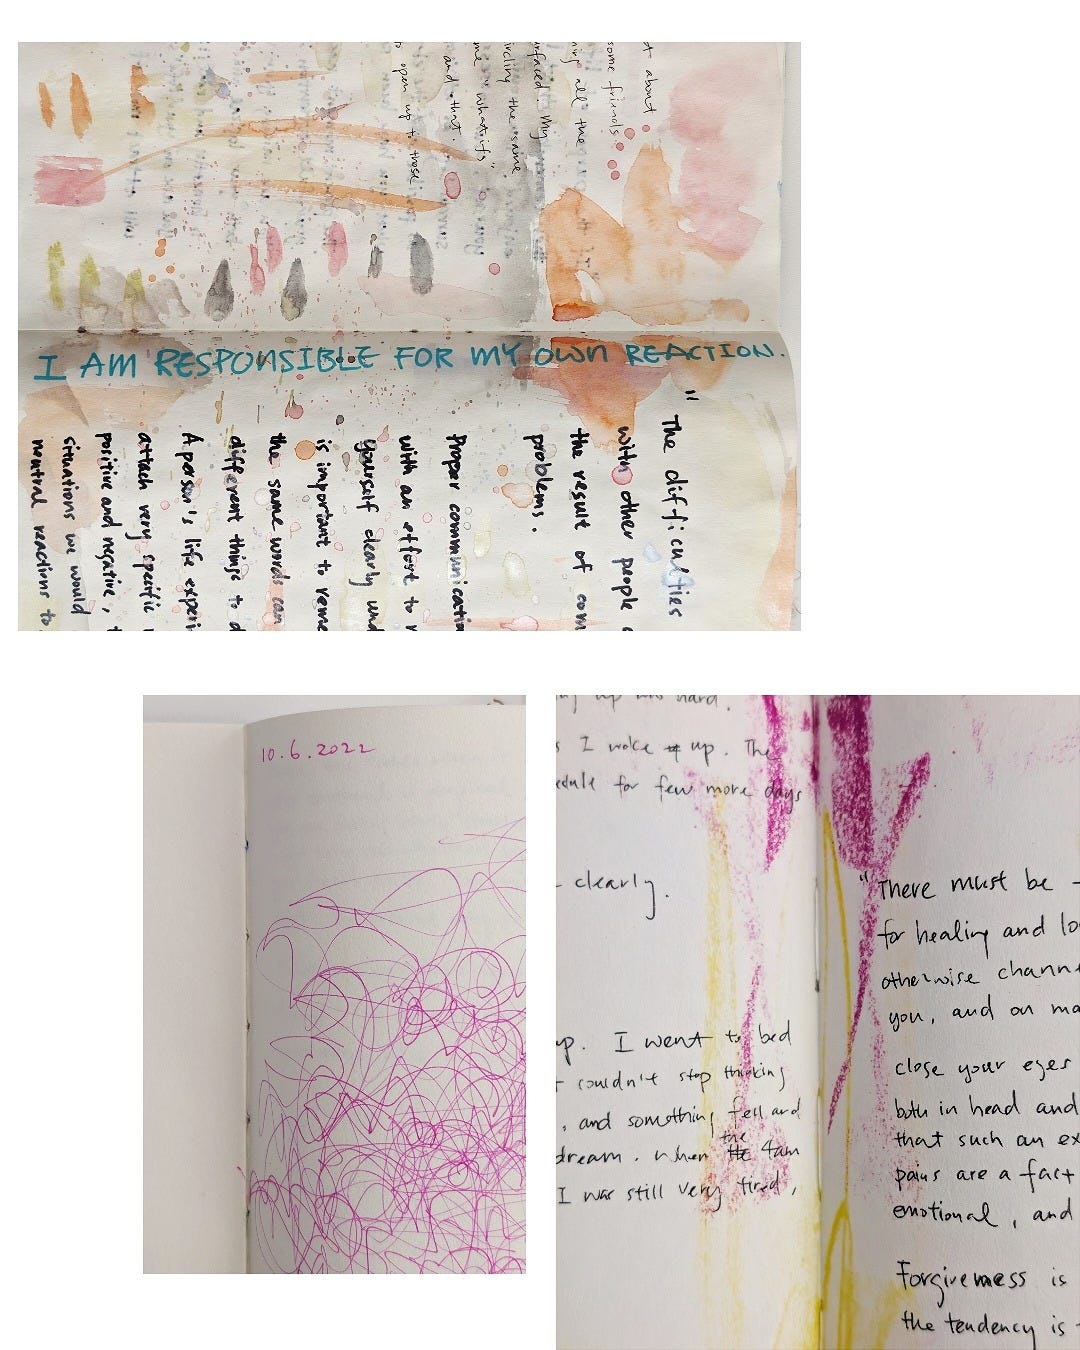 t about
some friends.
all the
urfaced. My
ircling the same
me "what ifs"
and that.
open up to those
I AM RESPONSIBLE FOR MY OWN REACTION.
"The difficulties
with other people
the result of com
problems.
Proper communicatio
with an effort to
yourself clearly und
is important to reme
the same words can
different things to d
A person's life experi
attach very specific
positive and negative,
situations we would
neutral reactions to
10.6.2022
up was hard.
s I woke up. The
edule for few more days
clearly.
up. I went to bed
couldn't stop thinking
, and something fell and
dream. When the 4am
I was still very tired,
"There must be
for healing and lo
otherwise chann
you, and on ma
close your eyes
both in head and
that such an ex
pains are a fact
emotional, and
Forgiveness is
the tendency is